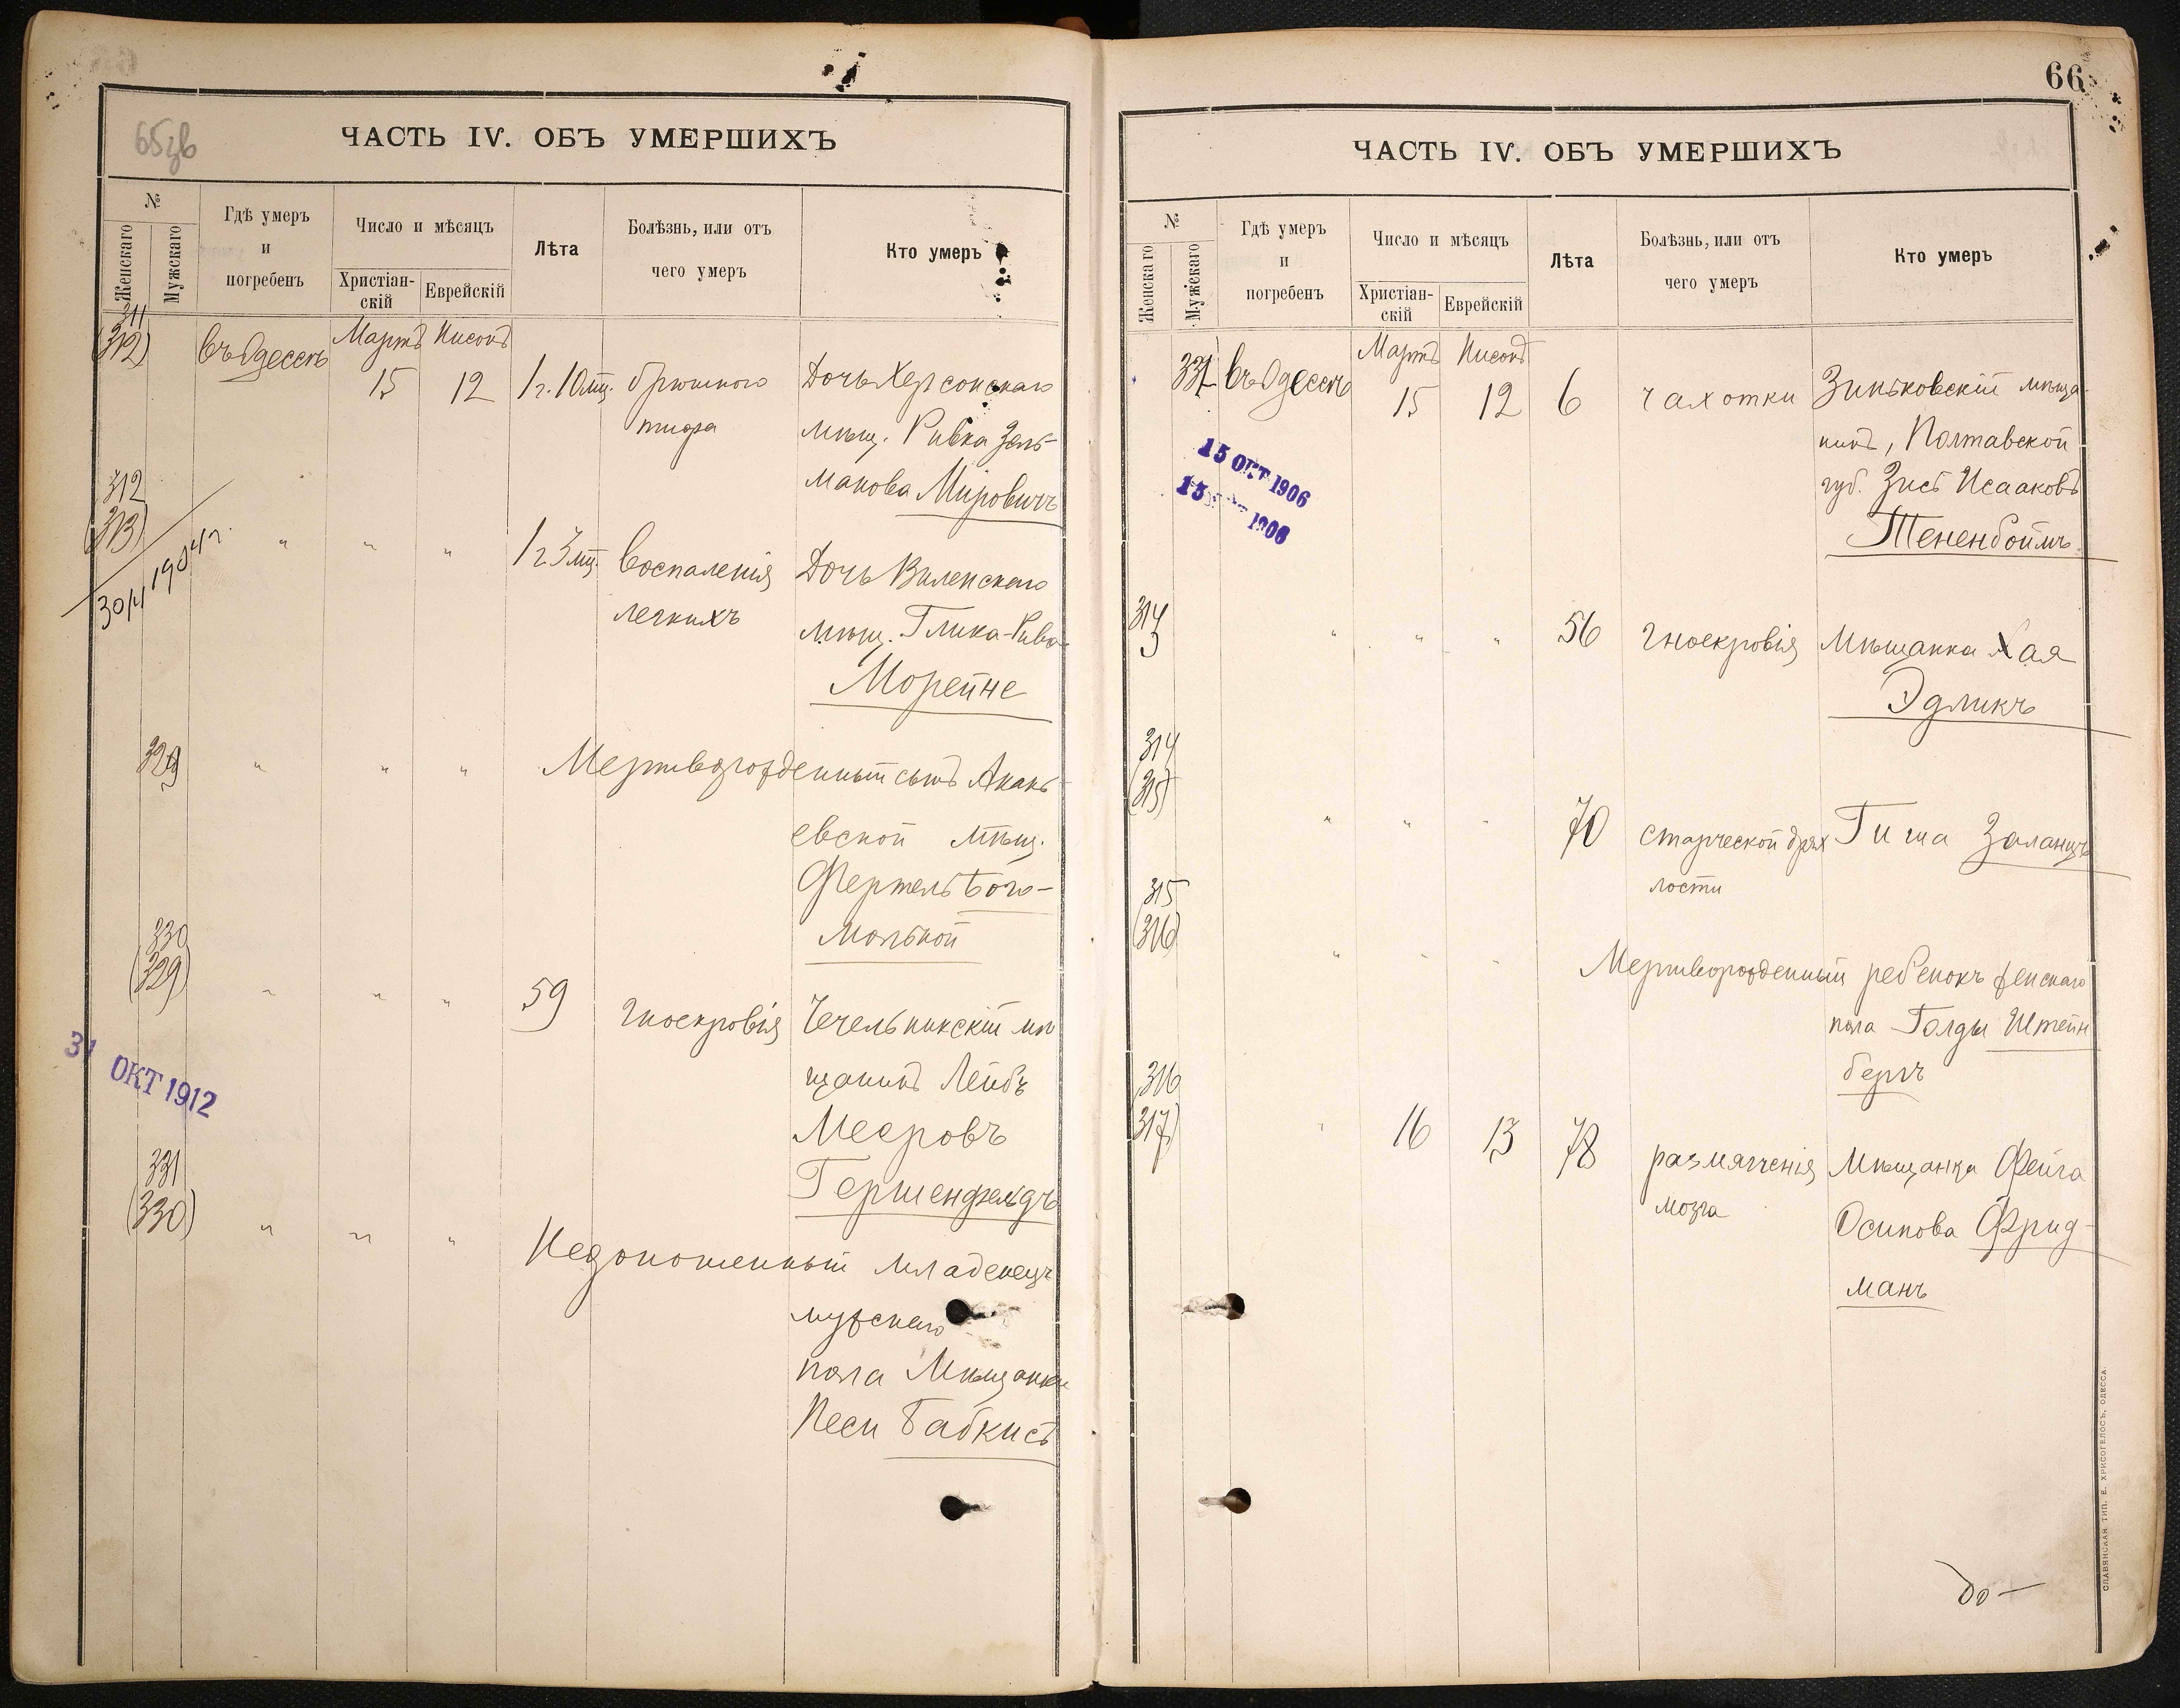 65зв
ЧАСТЬ IV. ОБЪ УМЕРШИХЪ
№
Женскаго
Мужскаго
Гдѣ умеръ
и
погребенъ
Число и мѣсяцъ
Христіан-
скій
Еврейскій
Лѣта
Болѣзнь, или отъ
чего умеръ
Кто умеръ
311
(312)
въ Одессѣ
Мартъ Нисонъ
15 12 1 г. 10 мц. брюшного Дочь Херсонскаго
тифа мѣщ. Ривка Зель-
манова Мировичъ
312
(313)
30/4 1904 г.
" " " 1 г. 3 мц. Воспаленія Дочь Виленскаго
легкихъ мѣщ. Глика-Ривка
Морейне
329 " " " Мертворожденный сынъ Анань-
евской мѣщ.
Фертель Бого-
мольной
330
(329)
" " " 59 гноекровія Чечельникскій мѣ
щанинъ Лейбъ
Мееровъ
Гершенфельдъ
31 ОКТ 1912
331
(330)
" " " Недоношенный младенецъ
мужскаго
пола Мѣщанки
Песи Бабкисъ
66
ЧАСТЬ IV. ОБЪ УМЕРШИХЪ
№
Женскаго
Мужскаго
Гдѣ умеръ
и
погребенъ
Число и мѣсяцъ
Христіан-
скій
Еврейскій
Лѣта
Болѣзнь, или отъ
чего умеръ
Кто умеръ
Мартъ Нисонъ
въ Одессѣ 15 12 6 чахотки Зиньковскій мѣща-
нинъ, Полтавской
губ. Зусь Исааковъ
Тененбоймъ
15 ОКТ 1906
" " " 56 гноекровія Мѣщанка Хая
Эдликъ
314
(315)
" " " 70 старческой дрях Гиша Заланцъ
лости
315
(316)
" " " Мертворожденный ребенокъ женскаго
пола Голды Штейн
бергъ
316
(317)
" 16 13 78 размягченія Мѣщанка Фейга
мозга Осипова Фрид-
манъ
СЛАВЯНСКАЯ ТИП. Е. ХРИСОГЕЛОСЪ, ОДЕССА.